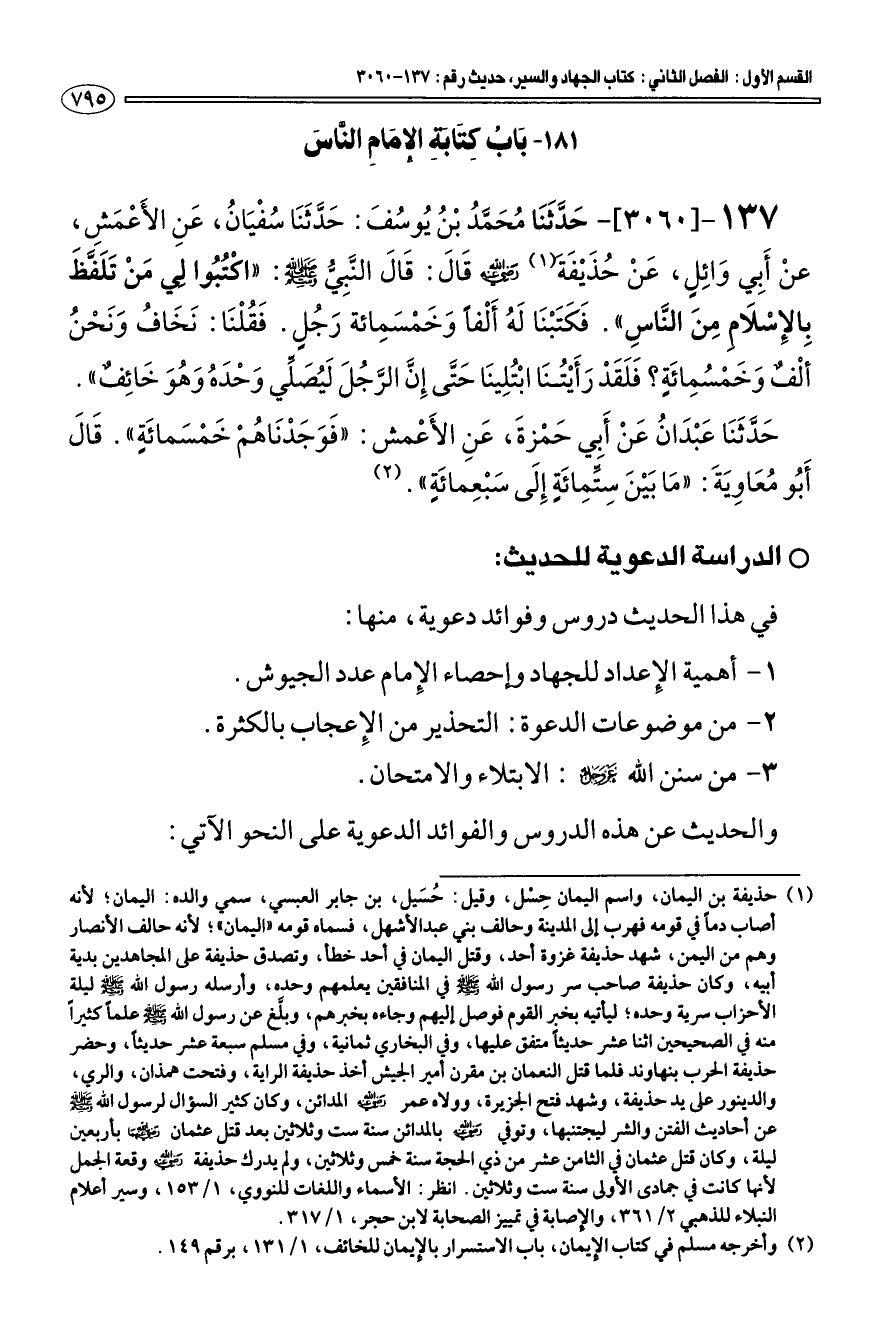 القسم الأول: الفصل الثاني: كتاب الجهاد والسير، حديث رقم: ١٣٧-٣٠٦٠
٧٩٥
١٨١- بَابُ كِتَابَةِ الإِمَامِ النَّاسَ
١٣٧ -[٣٠٦٠]- حَدَّثَنَا مُحَمَّدُ بْنُ يُوسُفَ: حَدَّثَنَا سُفْيَانُ، عَنِ الأَعْمَشِ،
عنْ أَبِي وَائِلٍ، عَنْ حُذَيْفَةَ(١) رَضِيَ اللَّهُ عَنْهُ قَالَ: قَالَ النَّبِيُّ ﷺ: «اكْتُبُوا لِي مَنْ تَلَفَّظَ
بِالإِسْلَامِ مِنَ النَّاسِ». فَكَتَبْنَا لَهُ أَلْفاً وَخَمْسَمِائة رَجُلٍ. فَقُلْنَا: نَخَافُ وَنَحْنُ
أَلْفٌ وَخَمْسُمِائَةٍ؟ فَلَقَدْ رَأَيْتُـنَا ابْتُلِينَا حَتَّى إِنَّ الرَّجُلَ لَيُصَلِّي وَحْدَهُ وَهُوَ خَائِفٌ».
حَدَّثَنَا عَبْدَانُ عَنْ أَبِي حَمْزةَ، عَنِ الأَعْمش: «فَوَجَدْنَاهُمْ خَمْسَمائَةٍ». قَالَ
أَبُو مُعَاوِيَةَ: «مَا بَيْنَ سِتِّمِائَةٍ إِلَى سَبْعِمائَةٍ».(٢)
○ الدراسة الدعوية للحديث:
في هذا الحديث دروس وفوائد دعوية، منها:
١- أهمية الإعداد للجهاد وإحصاء الإمام عدد الجيوش.
٢- من موضوعات الدعوة: التحذير من الإعجاب بالكثرة.
٣- من سنن الله عَزَّوَجَلَّ : الابتلاء والامتحان.
والحديث عن هذه الدروس والفوائد الدعوية على النحو الآتي:
(١) حذيفة بن اليمان، واسم اليمان حِسْل، وقيل: حُسَيل، بن جابر العبسي، سمي والده: اليمان؛ لأنه
أصاب دماً في قومه فهرب إلى المدينة وحالف بني عبدالأشهل، فسماه قومه «اليمان»؛ لأنه حالف الأنصار
وهم من اليمن، شهد حذيفة غزوة أحد، وقتل اليمان في أحد خطأ، وتصدق حذيفة على المجاهدين بدية
أبيه، وكان حذيفة صاحب سر رسول الله ﷺ في المنافقين يعلمهم وحده، وأرسله رسول الله ﷺ ليلة
الأحزاب سرية وحده؛ ليأتيه بخبر القوم فوصل إليهم وجاءه بخبرهم، وبلَّغ عن رسول الله ﷺ علماً كثيراً
منه في الصحيحين اثنا عشر حديثاً متفق عليها، وفي البخاري ثمانية، وفي مسلم سبعة عشر حديثاً، وحضر
حذيفة الحرب بنهاوند فلما قتل النعمان بن مقرن أمير الجيش أخذ حذيفة الراية، وفتحت همذان، والري،
والدينور على يد حذيفة، وشهد فتح الجزيرة، وولاه عمر رَضِيَ اللَّهُ عَنْهُ المدائن، وكان كثير السؤال لرسول الله ﷺ
عن أحاديث الفتن والشر ليجتنبها، وتوفي رَضِيَ اللَّهُ عَنْهُ بالمدائن سنة ست وثلاثين بعد قتل عثمان رَضِيَ اللَّهُ عَنْهُمَا بأربعين
ليلة، وكان قتل عثمان في الثامن عشر من ذي الحجة سنة خمس وثلاثين، ولم يدرك حذيفة رَضِيَ اللَّهُ عَنْهُ وقعة الجمل
لأنها كانت في جمادى الأولى سنة ست وثلاثين. انظر: الأسماء واللغات للنووي، ١/ ١٥٣، وسير أعلام
النبلاء للذهبي ٢/ ٣٦١، والإصابة في تمييز الصحابة لابن حجر، ١/ ٣١٧.
(٢) وأخرجه مسلم في كتاب الإيمان، باب الاستسرار بالإيمان للخائف، ١/ ١٣١، برقم ١٤٩.